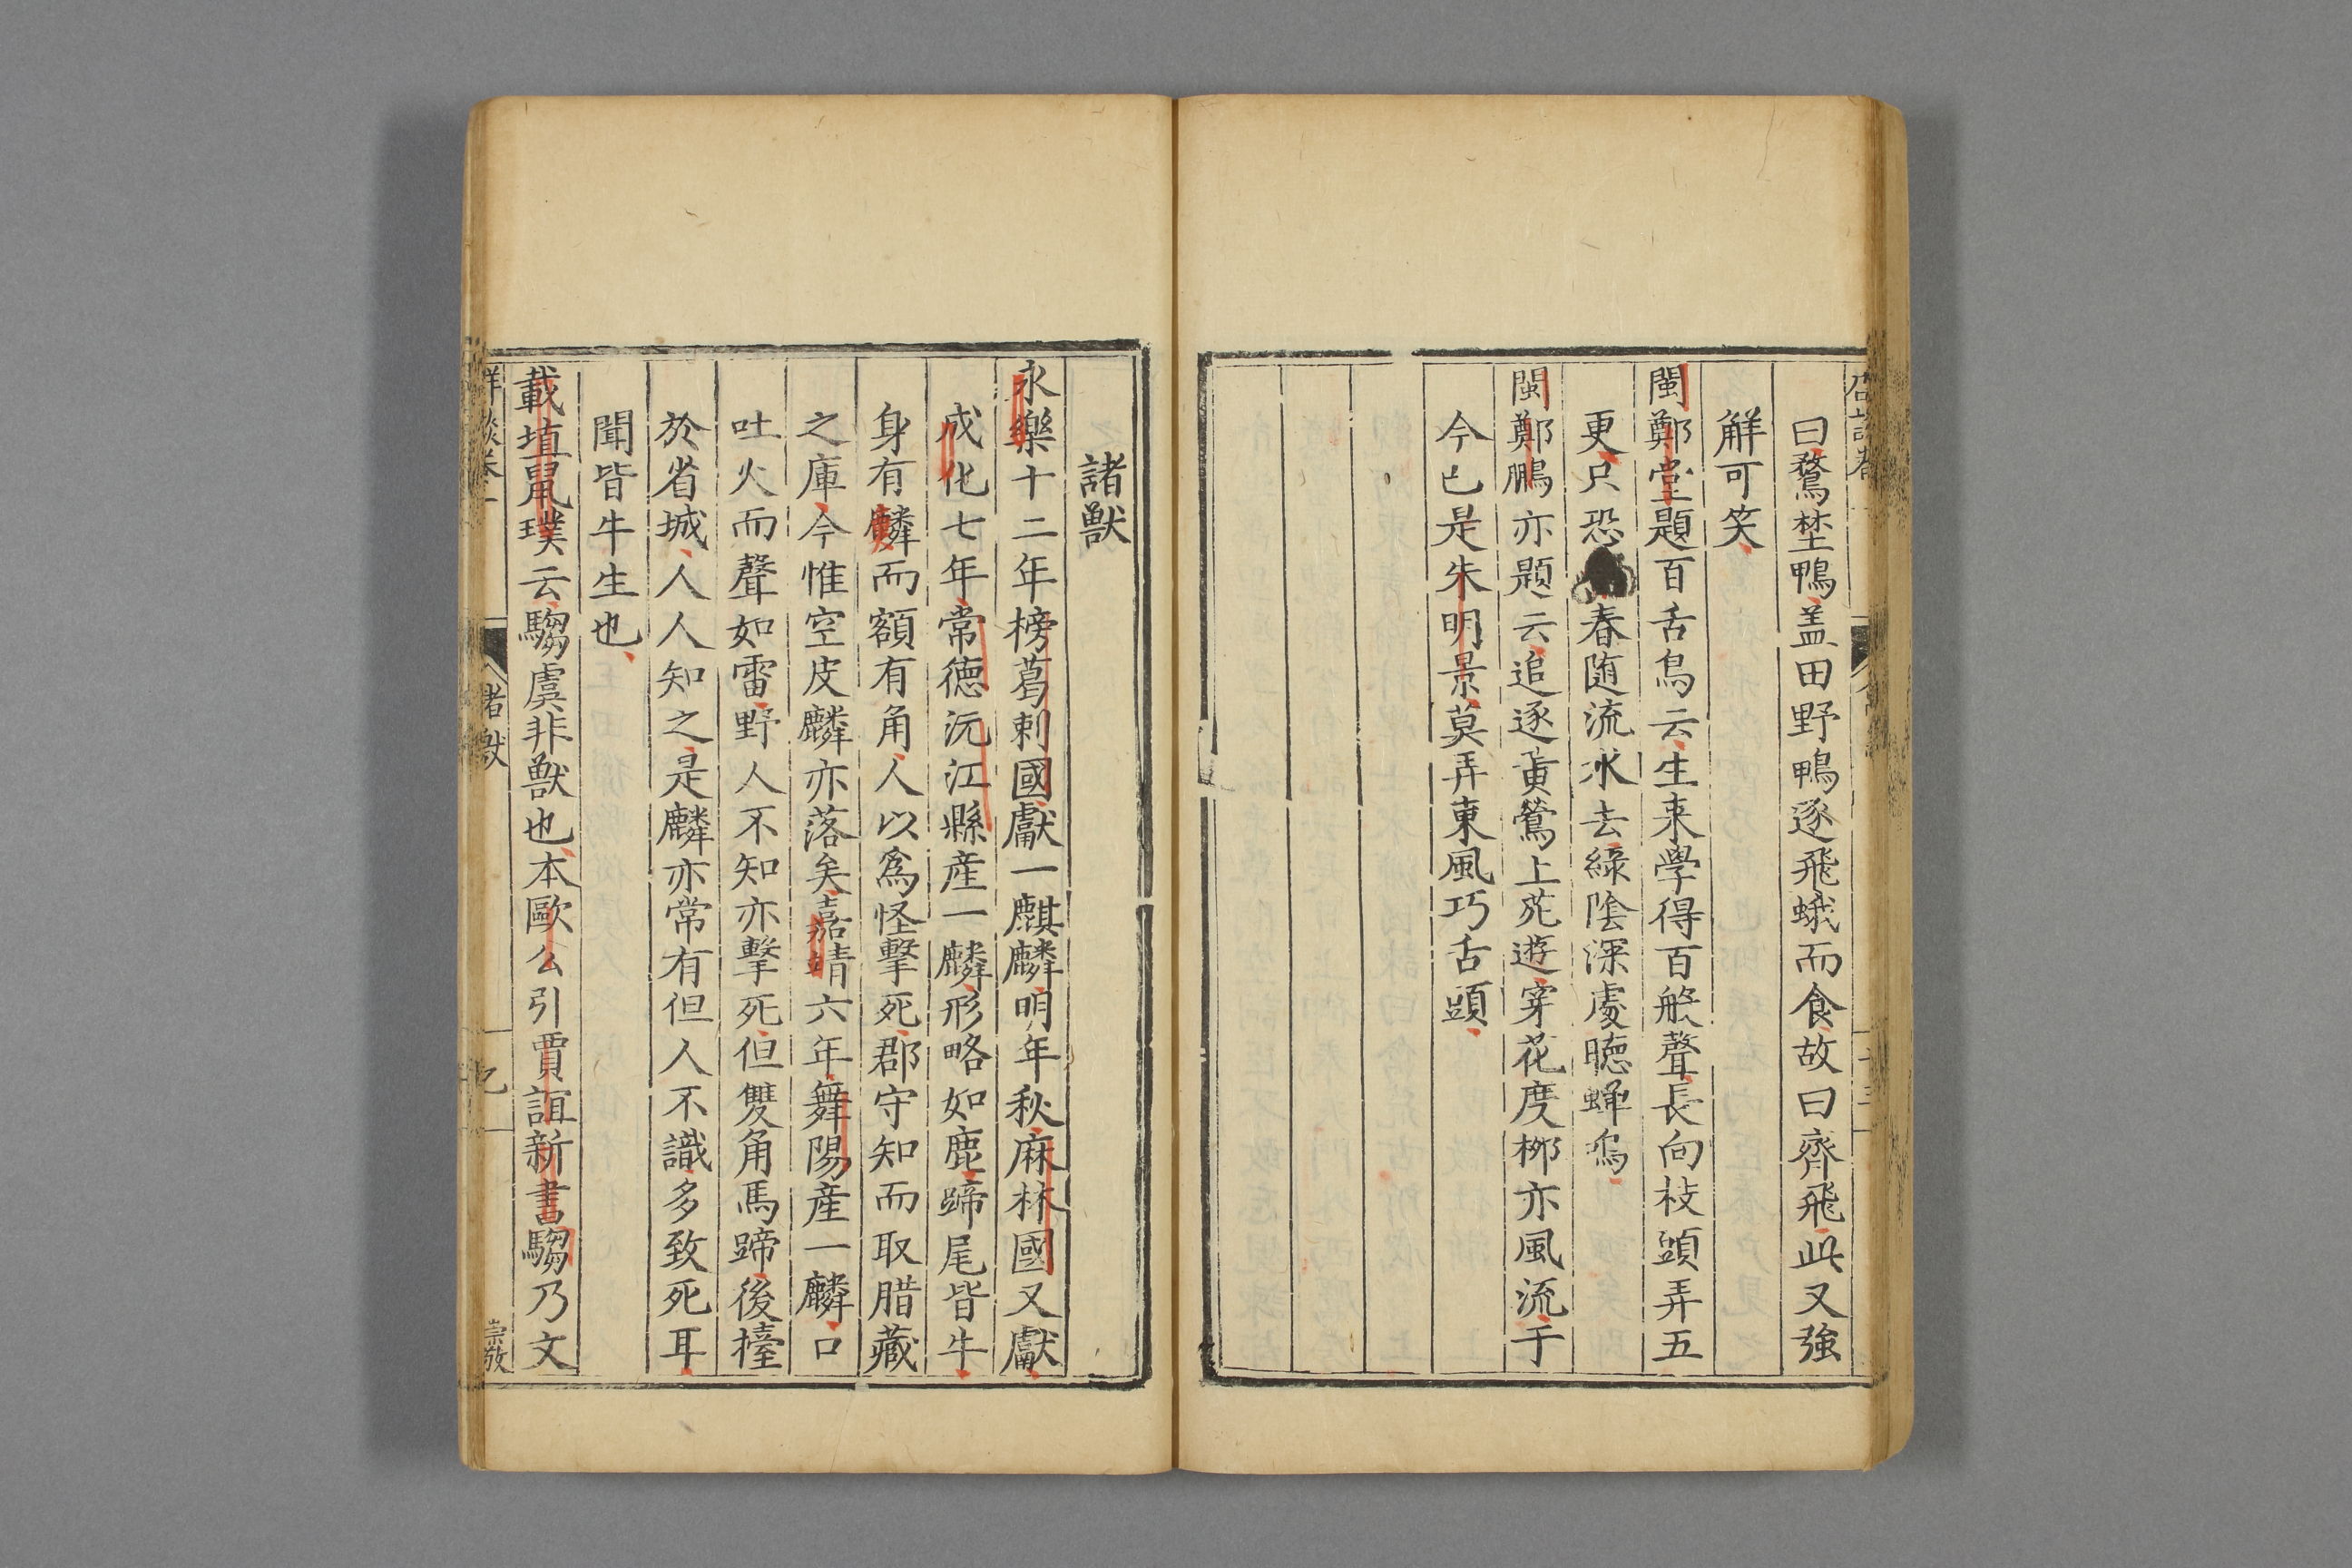 曰鶩埜鴨盖田野鴨逐飛蛾而食故曰齊飛此又強
觧可笑
閩鄭堂題百舌鳥云生来學得百般聲長向枝頭弄五
更只恐春随流水去綠陰深處聴蟬鳴
閩鄭鵬亦題云追逐黄鶯上苑遊穿花度栁亦風流于
今已是朱明景莫弄東風巧舌頭
諸獸
永樂十二年榜葛剌國獻一麒麟明年秋麻林國又獻
成化七年常徳沅江縣産一麟形略如鹿蹄尾皆牛
身有麟而額有角人以為怪擊死郡守知而取腊藏
之庫今惟空皮麟亦落矣嘉靖六年舞陽産一麟口
吐火而聲如雷野人不知亦擊死但雙角馬蹄後擡
於省城人人知之是麟亦常有但人不識多致死耳
聞皆牛生也
載埴鼠璞云騶虞非獸也本歐公引賈誼新書騶乃文
諸獸
崇敬